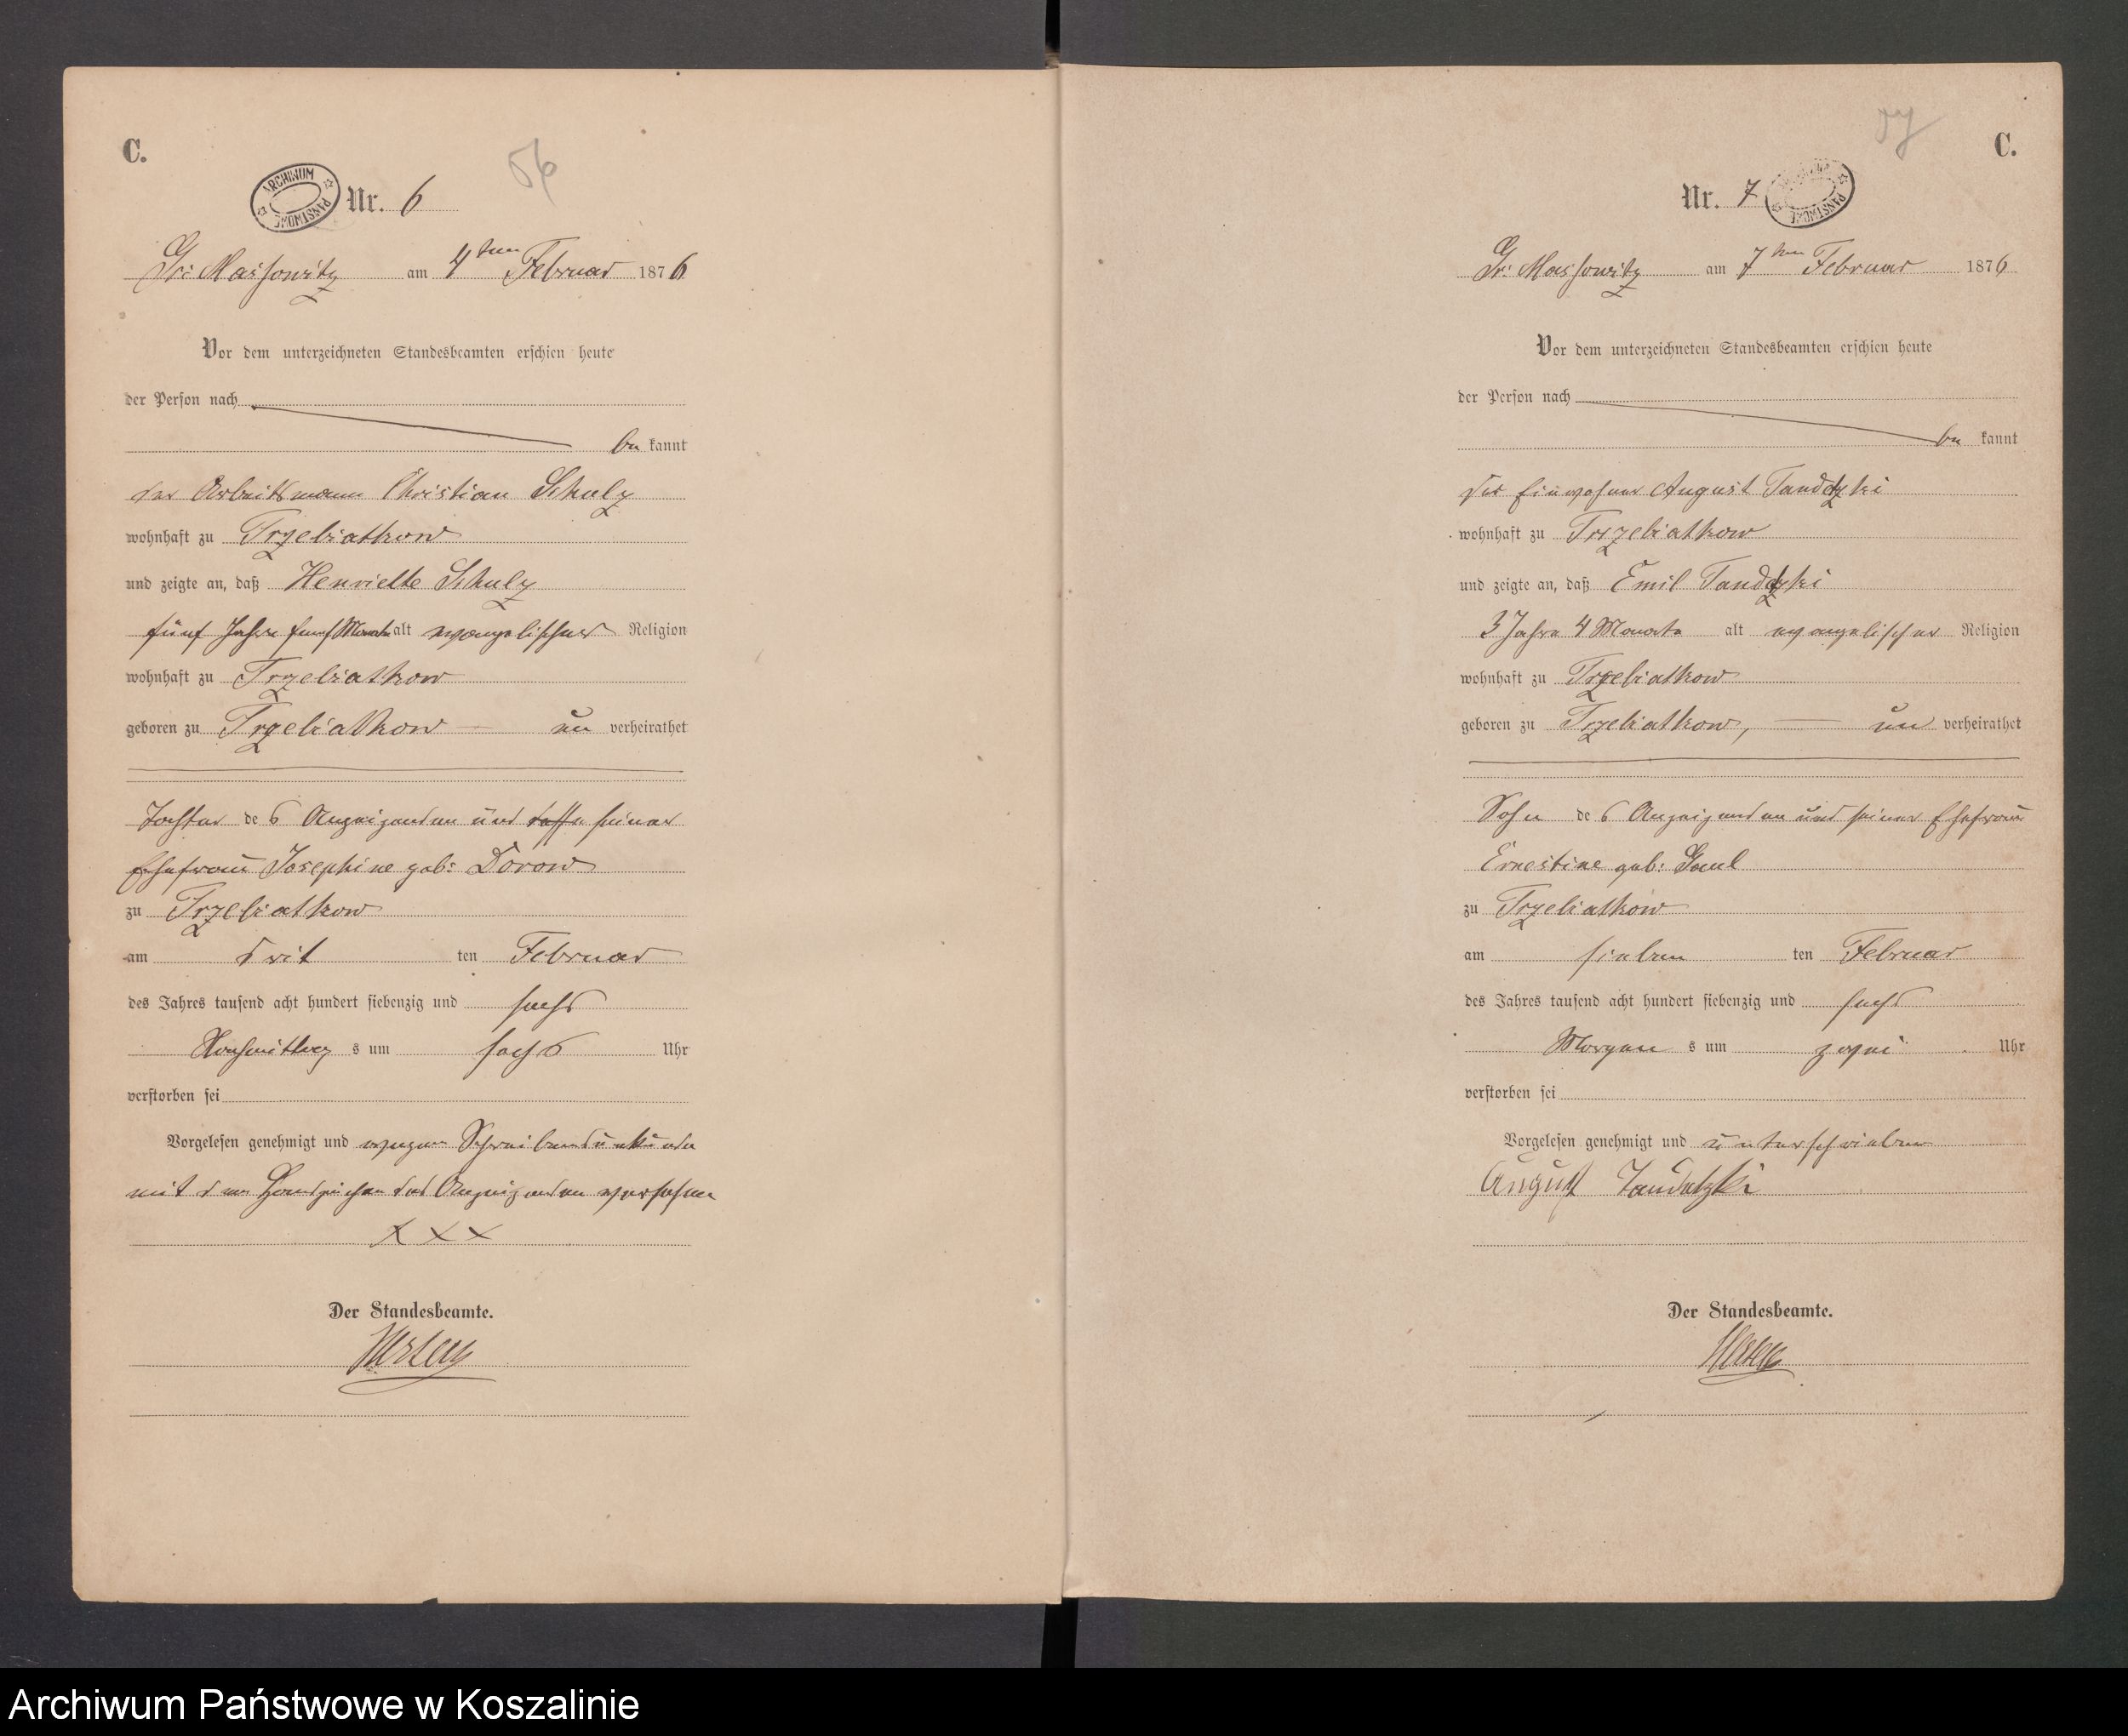 C.
56
ARCHIWUM PAŃSTWOWE
Nr. 6
Gr: Massowitz am 4ten Februar 1876
Vor dem unterzeichneten Standesbeamten erschien heute
der Person nach
be kannt
der Arbeitsmann Christian Schulz
wohnhaft zu Trzebiatkow
und zeigte an, daß Henriette Schulz
fünf Jahre fünf Monate alt evangelischer Religion
wohnhaft zu Trzebiatkow
geboren zu Trzebiatkow un verheirathet
Tochter des Anzeigenden und seiner
Ehefrau Josephine geb: Dorow
zu Trzebiatkow
am drit ten Februar
des Jahres tausend acht hundert siebenzig und sechs
Nachmittag s um sechs Uhr
verstorben sei
Vorgelesen genehmigt und wegen Schreibensunkunde
mit dem Handzeichen des Anzeigenden versehen
XXX
Der Standesbeamte.
57
C.
Nr. 7
PAŃSTWOWE
Gr: Massowitz am 7ten Februar 1876
Vor dem unterzeichneten Standesbeamten erschien heute
der Person nach
be kannt
der Einwohner August
wohnhaft zu Trzebiatkow
und zeigte an, daß Emil
3 Jahre 4 Monate alt evangelischer Religion
wohnhaft zu Trzebiatkow
geboren zu Trzebiatkow, un verheirathet
Sohn des Anzeigenden und seiner Ehefrau
Ernestine geb: Gaul
zu Trzebiatkow
am sieben ten Februar
des Jahres tausend acht hundert siebenzig und sechs
Morgen s um zwei Uhr
verstorben sei
Vorgelesen genehmigt und unterschrieben
August Tandetzki
Der Standesbeamte.
Archiwum Państwowe w Koszalinie